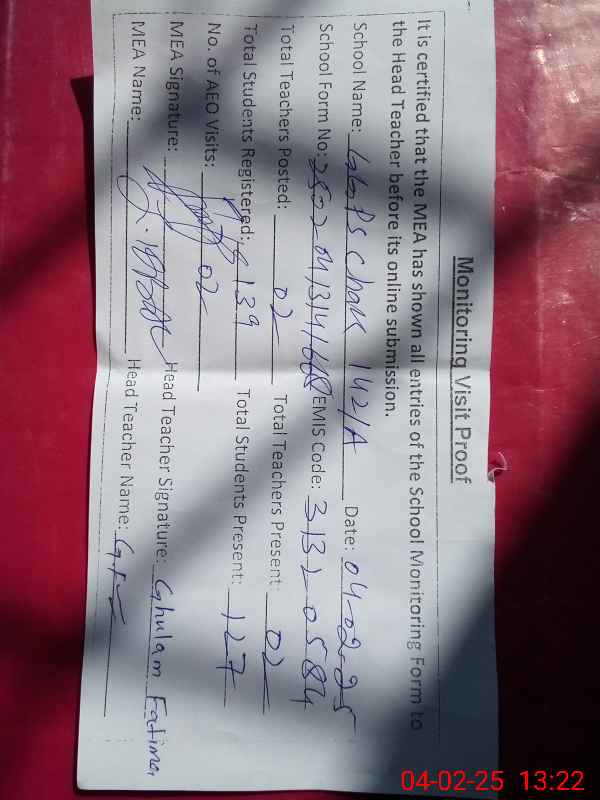 Monitoring Visit Proof
It is certified that the MEA has shown all entries of the School Monitoring Form to
the Head Teacher before its online submission.
School Name: GGPS chak 142/A Date: 04-02-25
School Form No: EMIS Code: 31320584
Total Teachers Posted: 02 Total Teachers Present: 02
Total Students Registered: 139 Total Students Present: 127
No. of AEO Visits: 02
MEA Signature: Head Teacher Signature: Ghulam Fatima
MEA Name: Head Teacher Name:
04-02-25 13:22